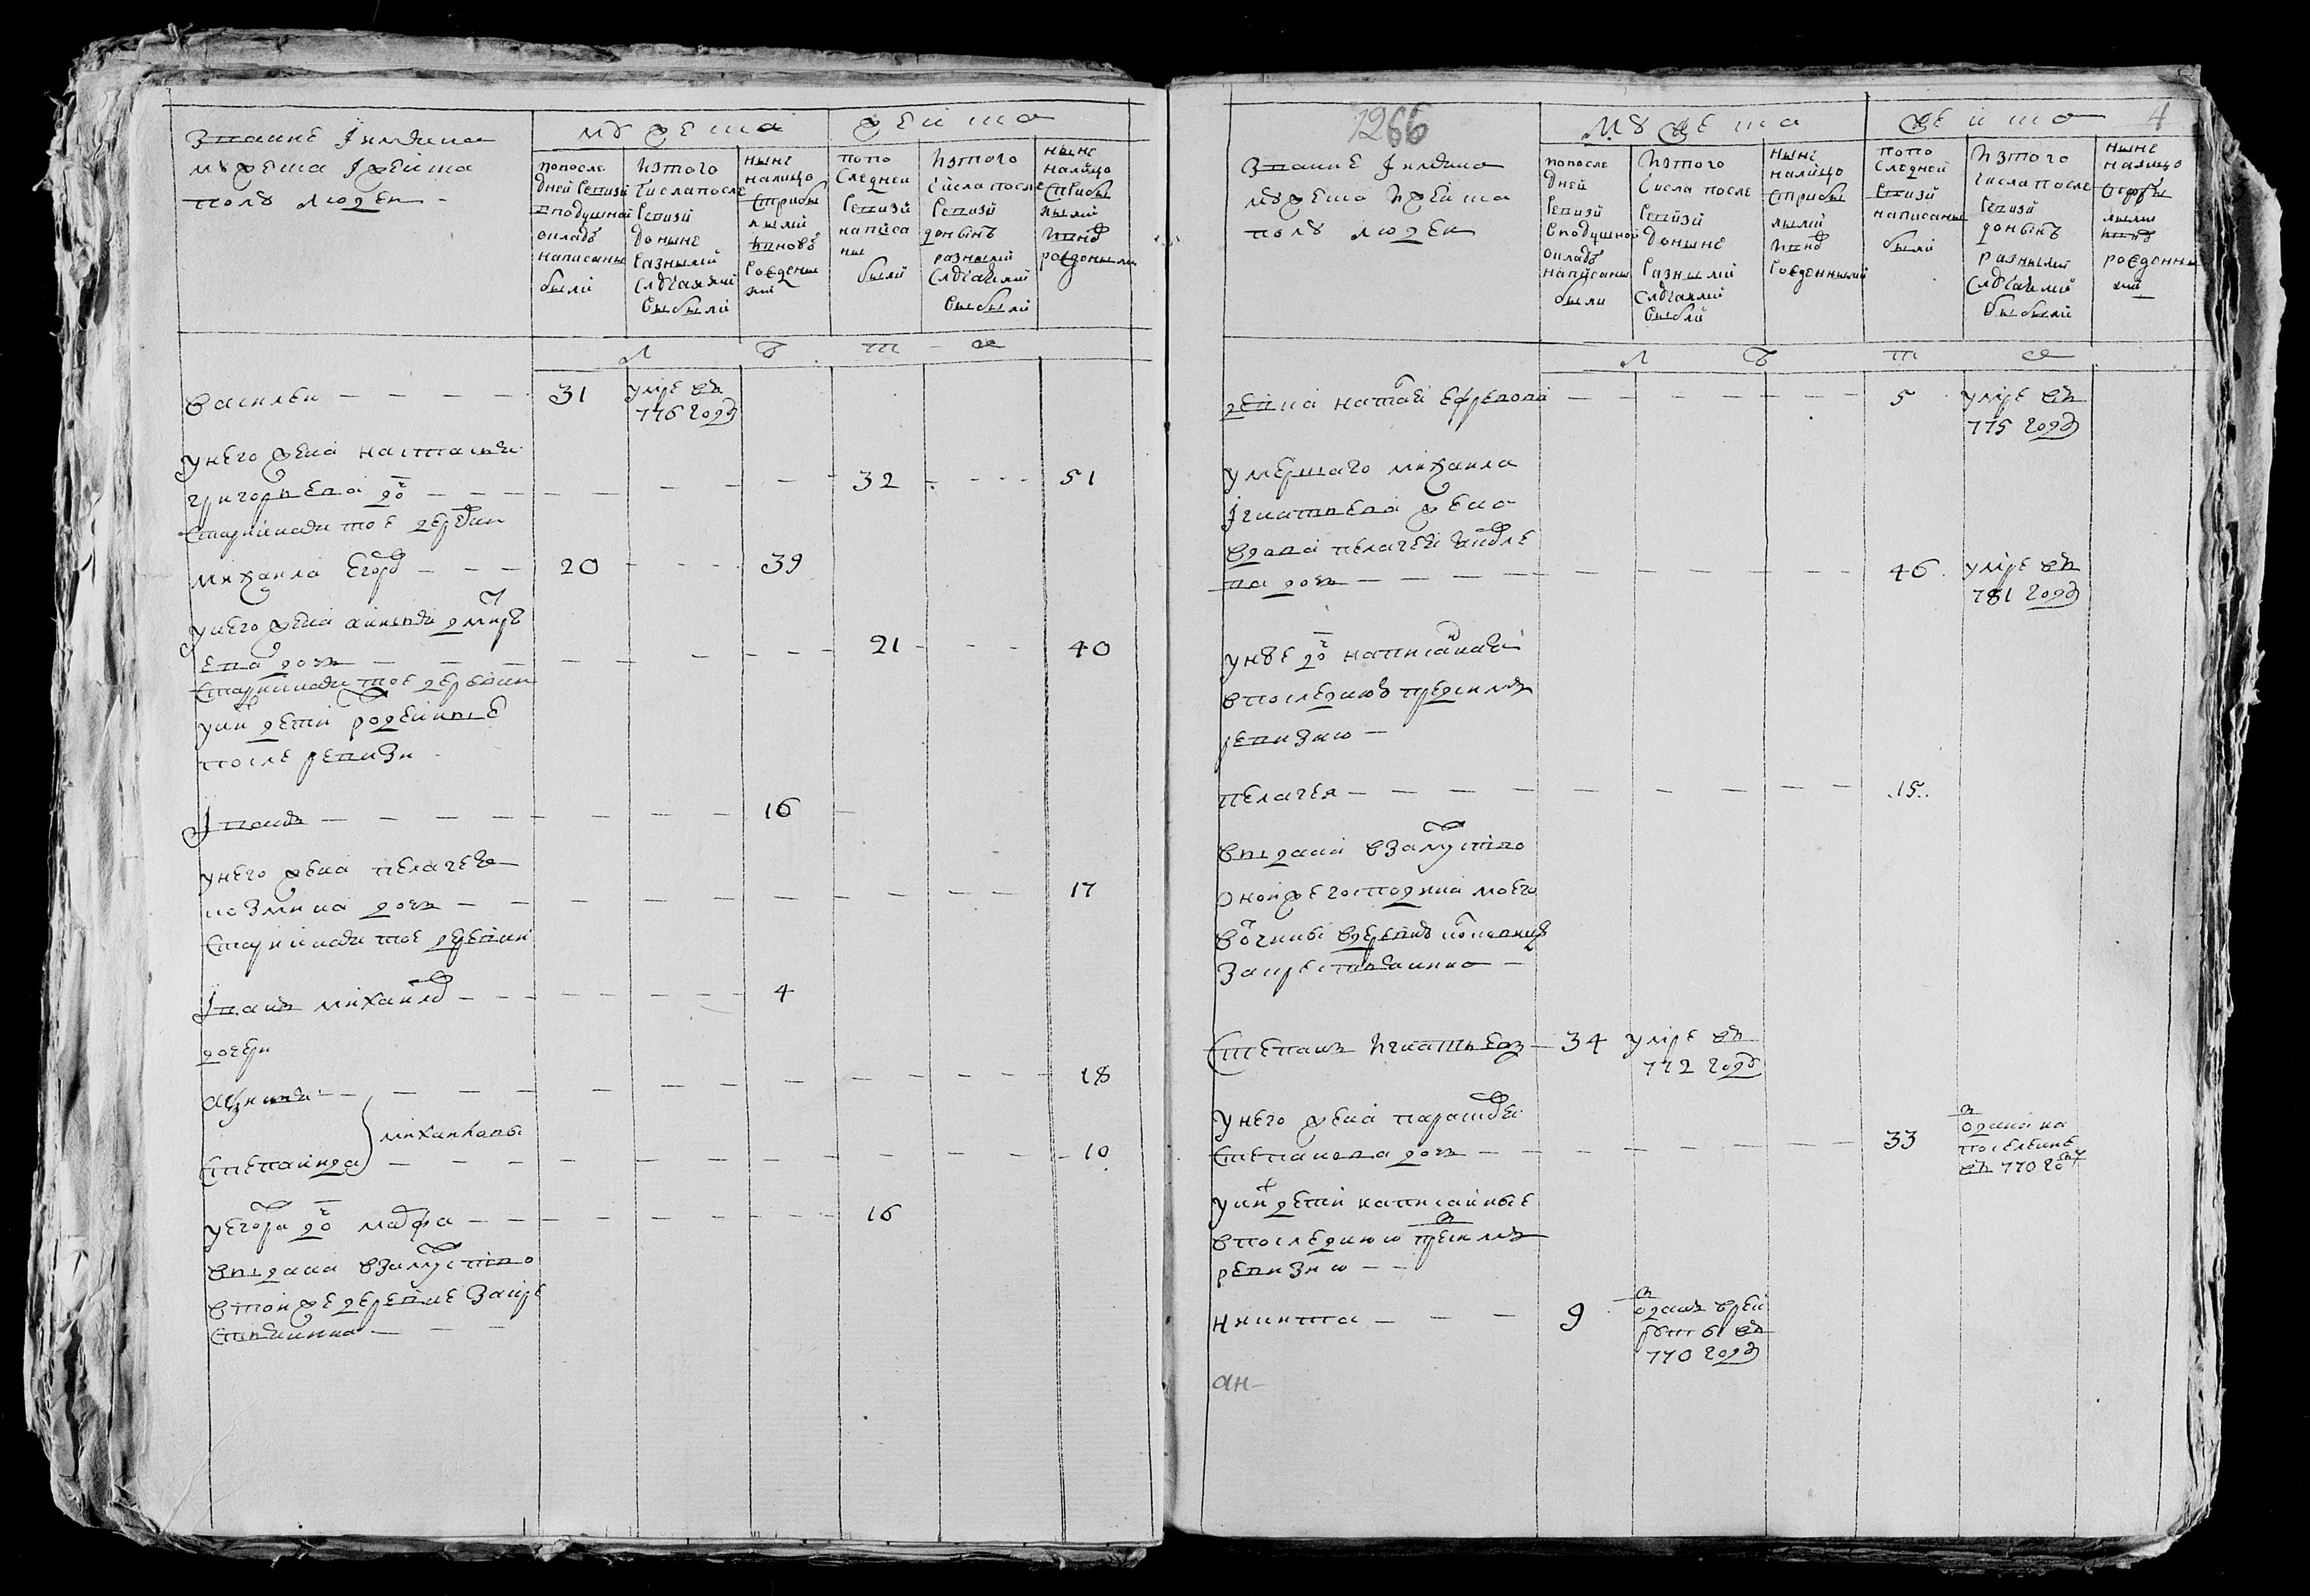 Звание Iимяна
мужеска Iженска
полу людеи
мужеска
женска
попосле
дней Ревизй
вподушной
окладъ
написаны
были
Изтого
Числапосле
Ревизй
доныне
Разными
случаями
выбыли
ныне
налицо
Сприбы
лыми
ивновъ
Рожденны
ми
попо
Следнеи
Ревизй
написа
ны
были
Изтого
числа после
Ревизй
донынѣ
разными
случаями
выбыли
ныне
налицо
Сприбы
лыми
ивнов
рожденными
Лѣта
василеи 31 умре въ
776 году
унего жена настасья
григорьева до 32 51
Стариннаяже тое деревни
михаила Егоро 20 39
унего жена
ева дочь 21 40
Стариннаяже тое деревни
уни дети рожденные
после ревизи
Iванъ 16
унего жена пелагея
козмина дочь 17
Стариннаяже тое деревни
Iванъ михаило 4
дочери
18
михаиловы
Степанида 10
уегора до марфа 16
выдана взамуство
втойже деревне закре
стьянина
1266
4
Звание Iимяна
мужеска Iженска
полу людеи
мужеска
женска
попосле
дней
Ревизй
вподушной
окладъ
написаны
были
Изтого
Числа после
Ревизй
доныне
Разными
случаями
выбыли
ныне
налицо
Сприбы
лыми
ивнов
Рожденными
попо
Следней
Ревизй
написаны
были
Изтого
числа после
Ревизй
донынѣ
разными
случаями
выбыли
ныне
налицо
лыми
ивнов
рожденны
ми
Лѣта
5 умре въ
775 году
умершаго михаила
Iгнатьева жена
вдова пелагея
ва дочь 46 умре въ
781 году
унее до написаная
впоследнюю предсимъ
ревизию
пелагея 15
выдана взамуство
оноиже господина моего
вочины вдеревню
закрестьянина
Степанъ Игнатьевъ 34 умре въ
772 году
унего жена параскове
Степанова дочь 33 одана на
поселение
въ 770 го
уни дети написанные
впоследнюю пресимъ
ревизию
никита 9 оданъ врек
руты въ
770 году
ан